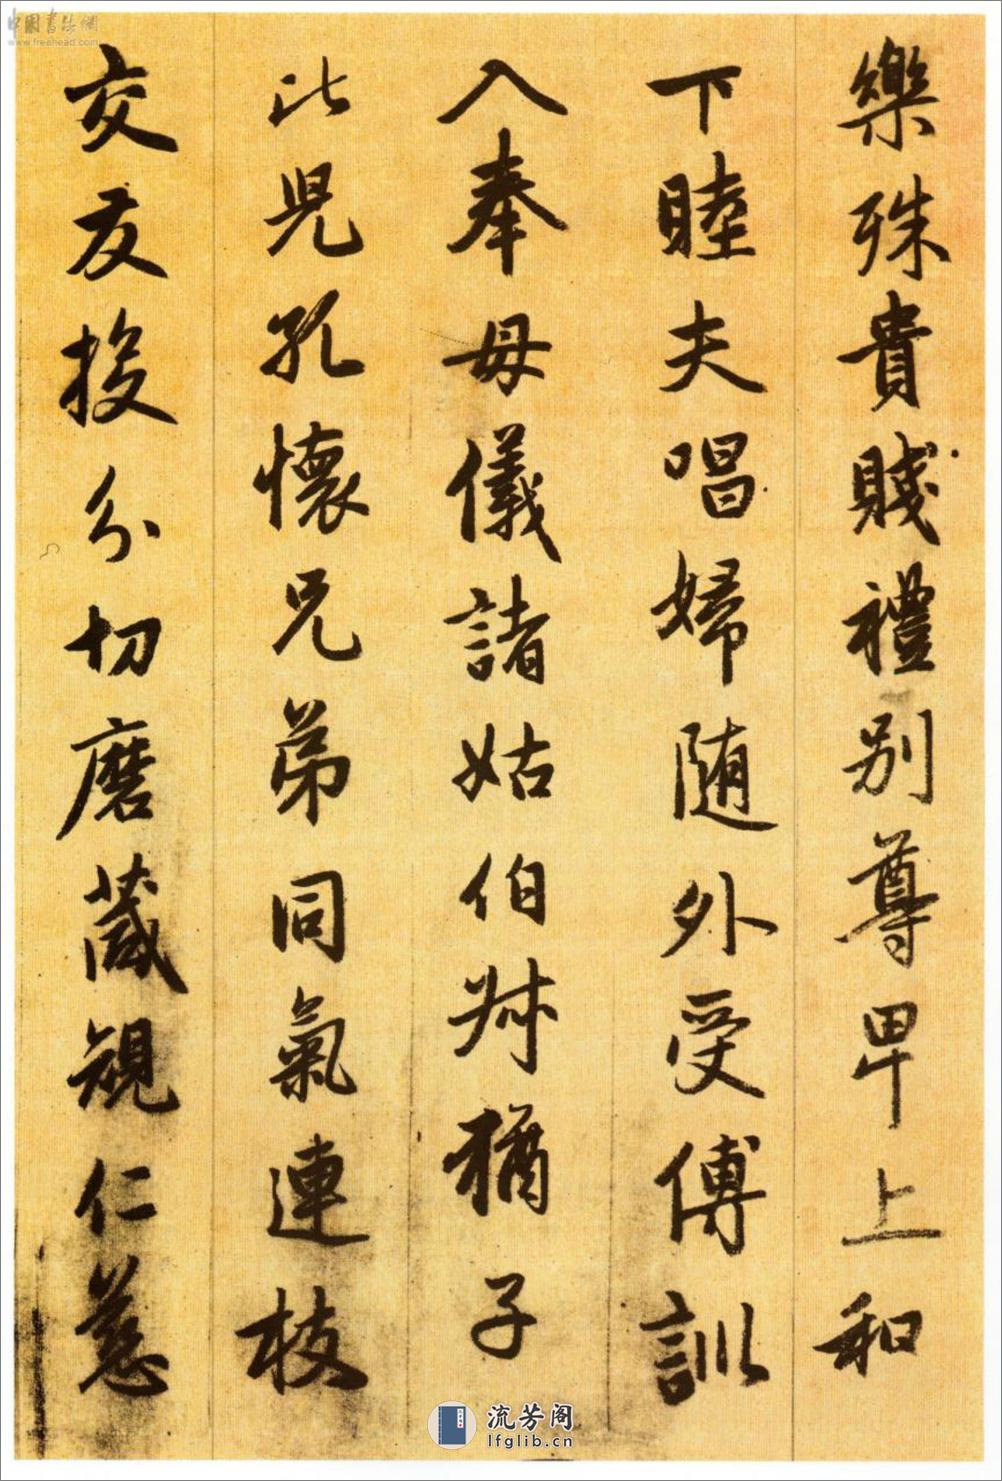 樂殊貴賤禮別尊卑上和
下睦夫唱婦随外受傅訓
入奉母儀諸姑伯叔猶子
比兒孔懷兄弟同氣連枝
交友投分切磨箴規仁慈
中國書法網
www.freehead.com
流芳阁
lfglib.cn